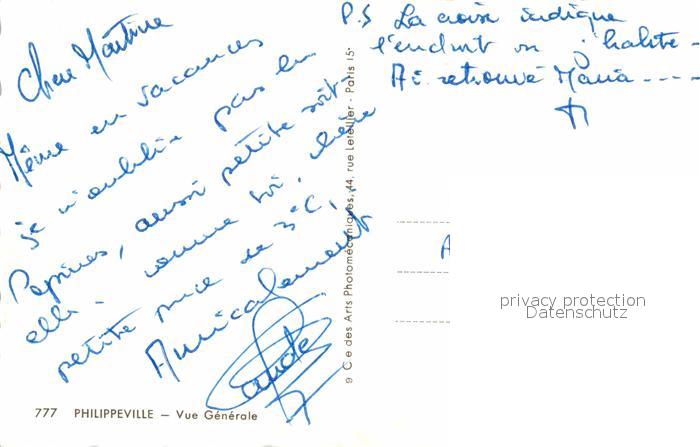 Chère Martine
Même en vacances
je n'oublie pas les
Pépines, aussi petite soit-
elle - comme toi, chère
petite puce de 3°C,
Amicalement
Claude
P.S La croix indique
l'endroit où j'habite -
Ai retrouvé Maria ----
A
privacy protection
Datenschutz
9 Cie des Arts Photomécaniques, 44, rue Letellier - Paris 15
777 PHILIPPEVILLE — Vue Générale